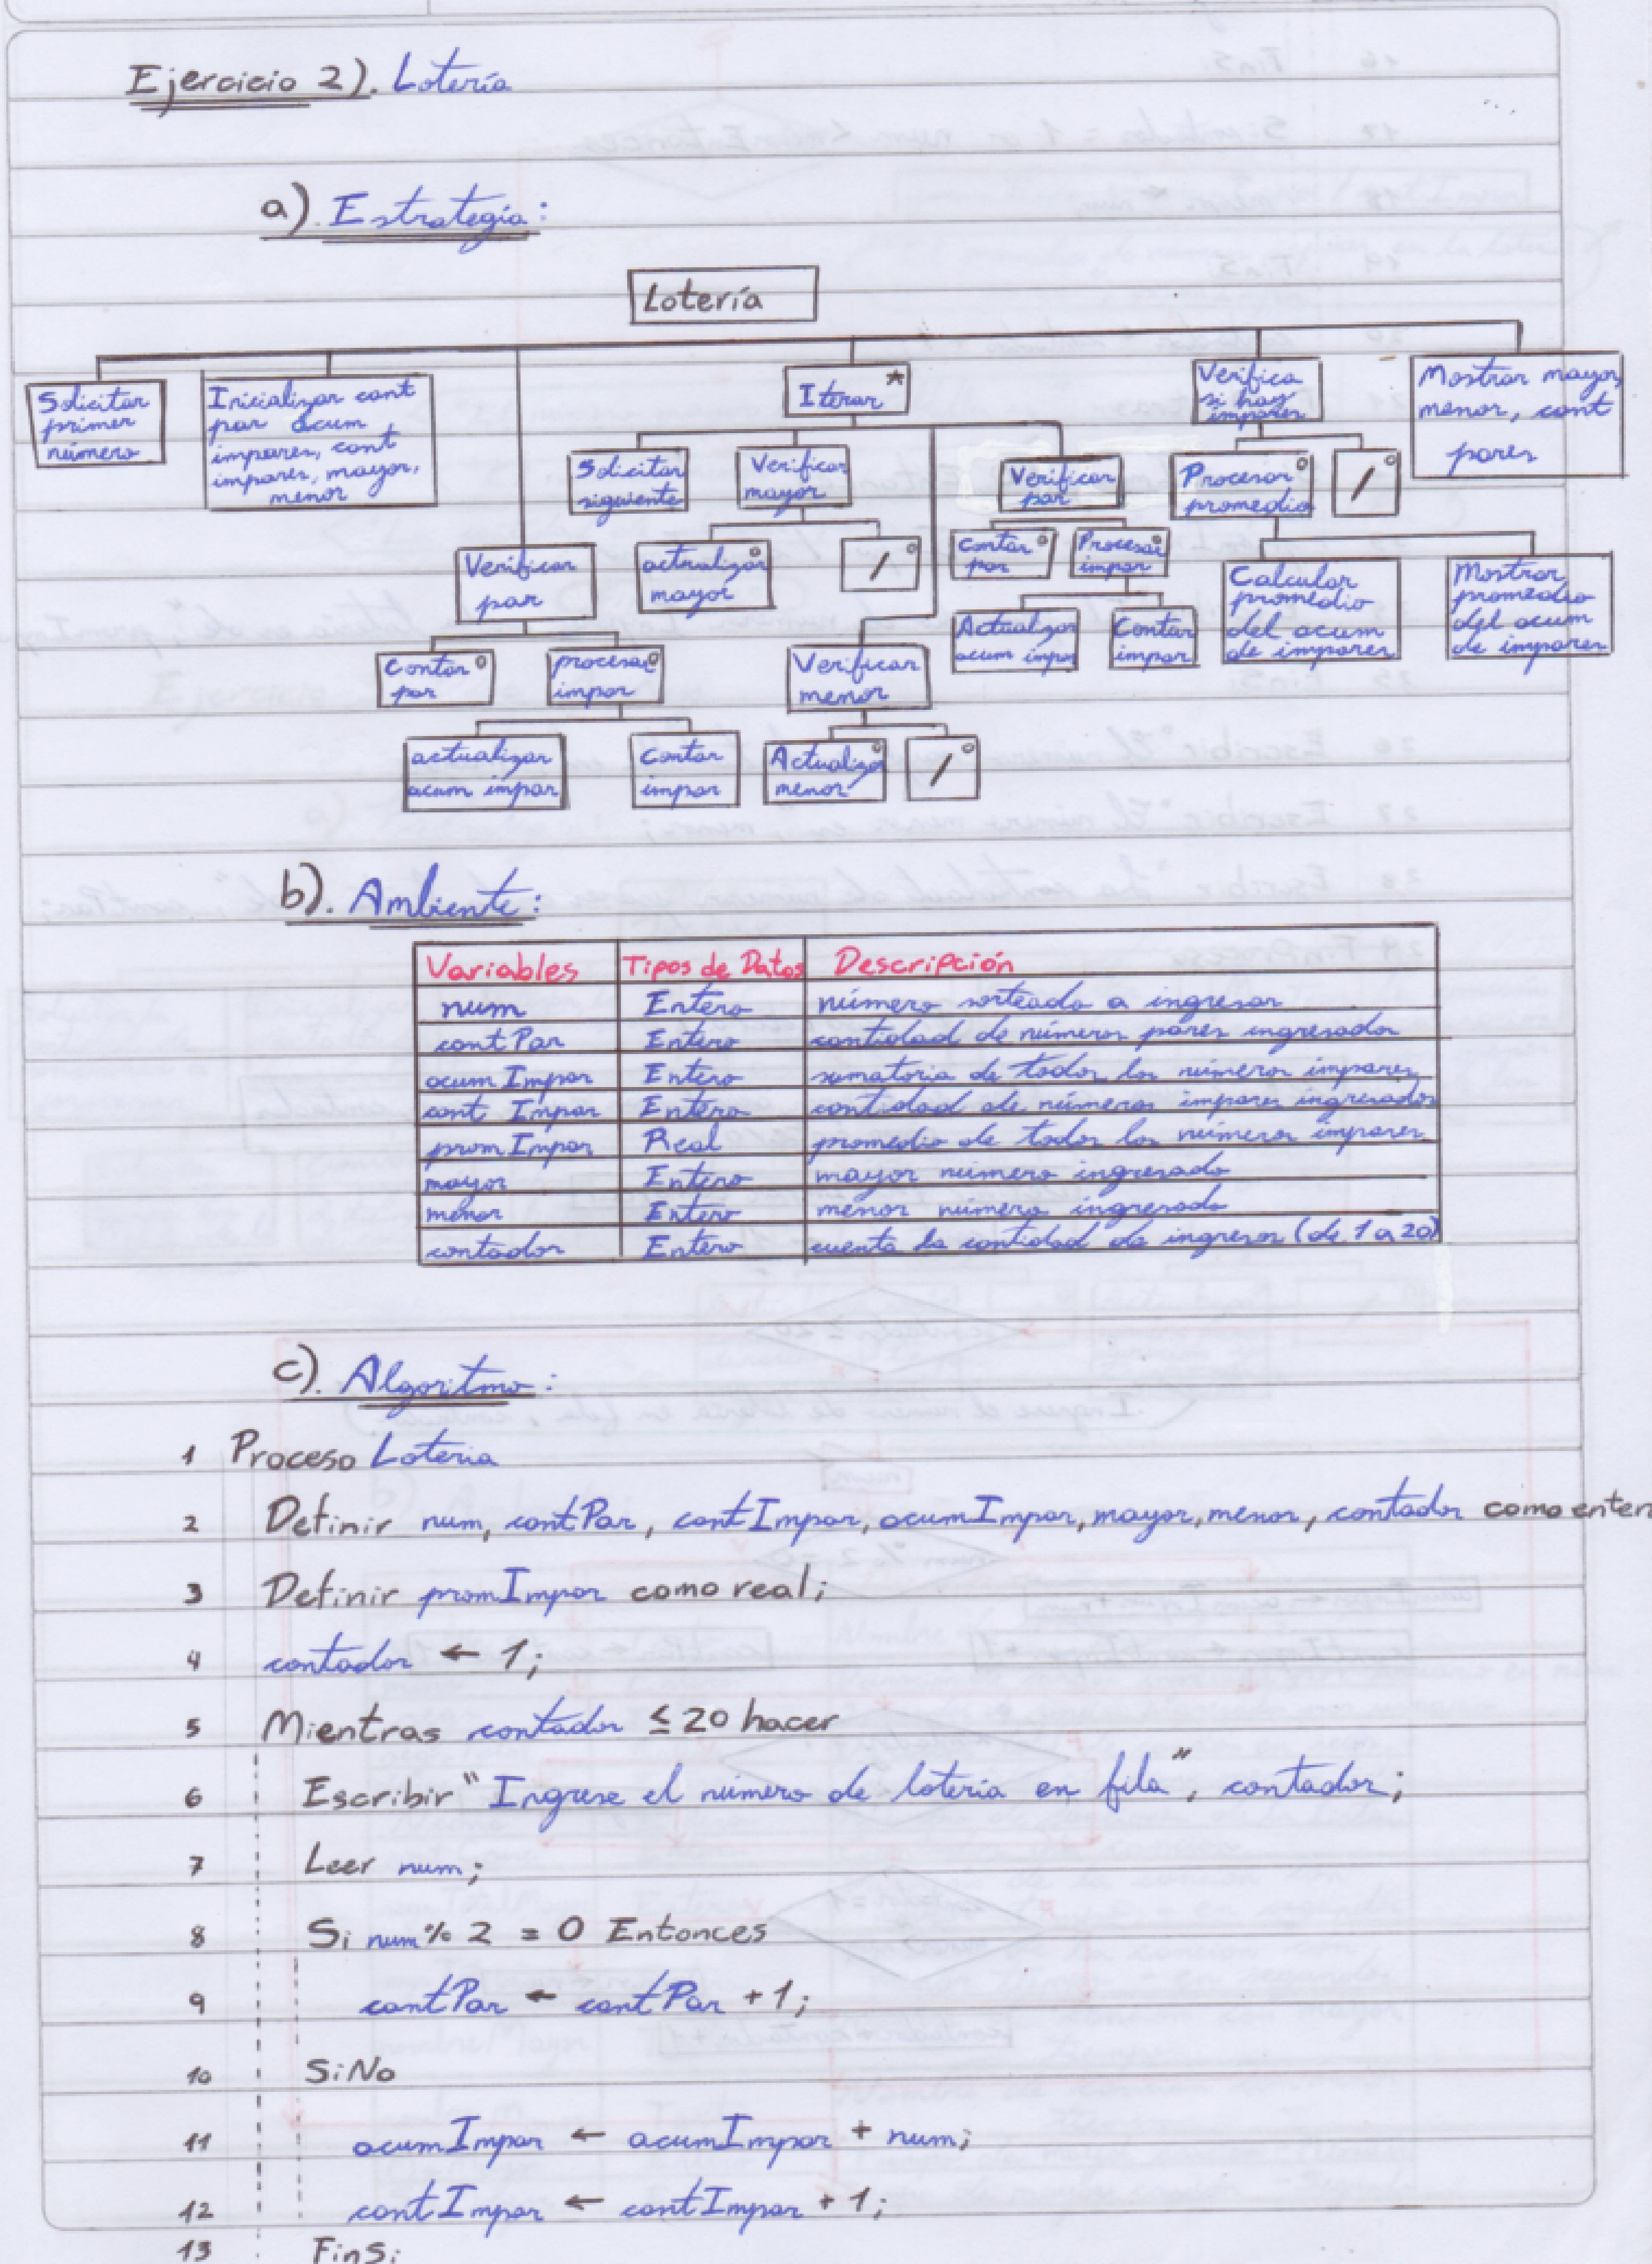 Ejercicio 2). Lotería
a). Estrategia:
Lotería
Solicitar
primer
número
Inicializar cont
par acum
impares, cont
impares, mayor,
menor
Verificar
par
Contar
par
procesar
impar
actualizar
acum impar
Contar
impar
Iterar *
Solicitar
siguiente
Verificar
mayor
actualizar
mayor
/
Verificar
menor
Actualizar
menor
/
Verificar
par
Contar
par
Procesar
impar
Actualizar
acum impar
Contar
impar
Verifica
si hay
impares
Procesar
promedio
/
Calcular
promedio
del acum
de impares
Mostrar
promedio
del acum
de impares
Mostrar mayor,
menor, cont
pares
b). Ambiente:
Variables Tipos de Datos Descripción
num Entero número sorteado a ingresar
contPar Entero cantidad de números pares ingresados
acumImpar Entero sumatoria de todos los números impares
cont Impar Entero cantidad de números impares ingresados
promImpar Real promedio de todos los números impares
mayor Entero mayor número ingresado
menor Entero menor número ingresado
contador Entero cuenta la cantidad de ingresos (de 1 a 20)
c). Algoritmo:
1 Proceso Loteria
2 Definir num, contPar, contImpar, acumImpar, mayor, menor, contador como enter
3 Definir promImpar como real;
4 contador ← 1;
5 Mientras contador ≤ 20 hacer
6 Escribir "Ingrese el número de lotería en fila", contador;
7 Leer num;
8 Si num % 2 = 0 Entonces
9 contPar ← contPar + 1;
10 SiNo
11 acumImpar ← acumImpar + num;
12 contImpar ← contImpar + 1;
13 FinSi